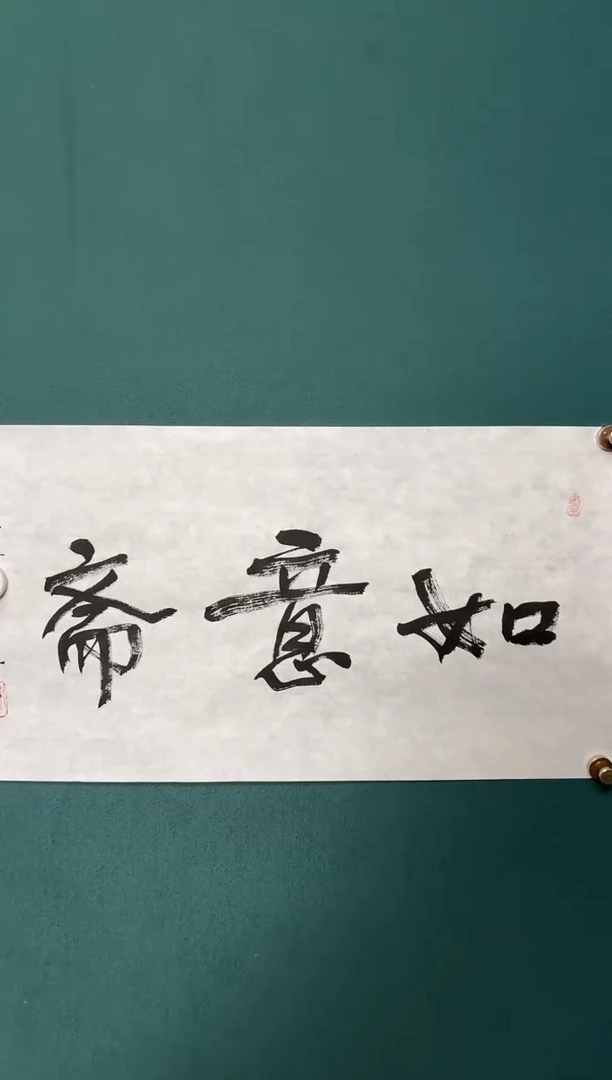 如意斋